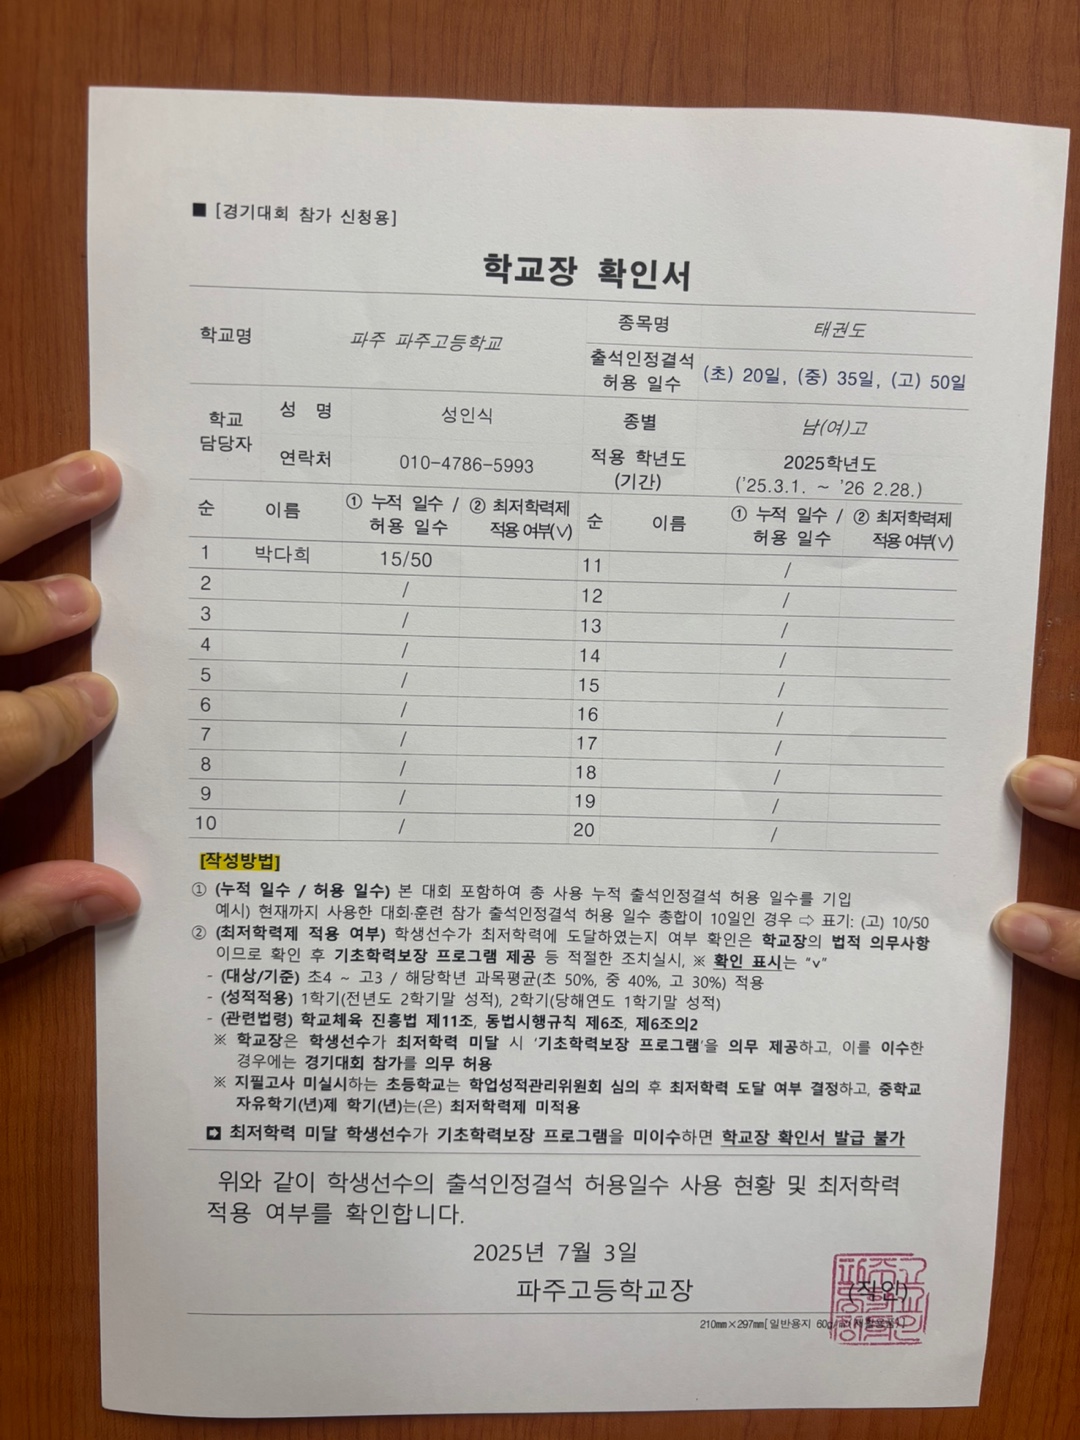 ■ [경기대회 참가 신청용]
학교장 확인서
학교명 파주 파주고등학교 종목명 태권도
출석인정결석 허용 일수 (초) 20일, (중) 35일, (고) 50일
학교 담당자 성 명 성인식 종별 남(여)고
연락처 010-4786-5993 적용 학년도 (기간) 2025학년도 ('25.3.1. ~ '26 2.28.)
순 이름 ① 누적 일수 / 허용 일수 ② 최저학력제 적용 여부(∨) 순 이름 ① 누적 일수 / 허용 일수 ② 최저학력제 적용 여부(∨)
1 박다희 15/50 11 /
2 / 12 /
3 / 13 /
4 / 14 /
5 / 15 /
6 / 16 /
7 / 17 /
8 / 18 /
9 / 19 /
10 / 20 /
[작성방법]
① (누적 일수 / 허용 일수) 본 대회 포함하여 총 사용 누적 출석인정결석 허용 일수를 기입
예시) 현재까지 사용한 대회·훈련 참가 출석인정결석 허용 일수 총합이 10일인 경우 ⇨ 표기: (고) 10/50
② (최저학력제 적용 여부) 학생선수가 최저학력에 도달하였는지 여부 확인은 학교장의 법적 의무사항
이므로 확인 후 기초학력보장 프로그램 제공 등 적절한 조치실시, ※ 확인 표시는 "v"
- (대상/기준) 초4 ~ 고3 / 해당학년 과목평균(초 50%, 중 40%, 고 30%) 적용
- (성적적용) 1학기(전년도 2학기말 성적), 2학기(당해연도 1학기말 성적)
- (관련법령) 학교체육 진흥법 제11조, 동법시행규칙 제6조, 제6조의2
※ 학교장은 학생선수가 최저학력 미달 시 '기초학력보장 프로그램'을 의무 제공하고, 이를 이수한
경우에는 경기대회 참가를 의무 허용
※ 지필고사 미실시하는 초등학교는 학업성적관리위원회 심의 후 최저학력 도달 여부 결정하고, 중학교
자유학기(년)제 학기(년)는(은) 최저학력제 미적용
➡ 최저학력 미달 학생선수가 기초학력보장 프로그램을 미이수하면 학교장 확인서 발급 불가
위와 같이 학생선수의 출석인정결석 허용일수 사용 현황 및 최저학력
적용 여부를 확인합니다.
2025년 7월 3일
파주고등학교장 (직인)
210㎜×297㎜[일반용지 60g/